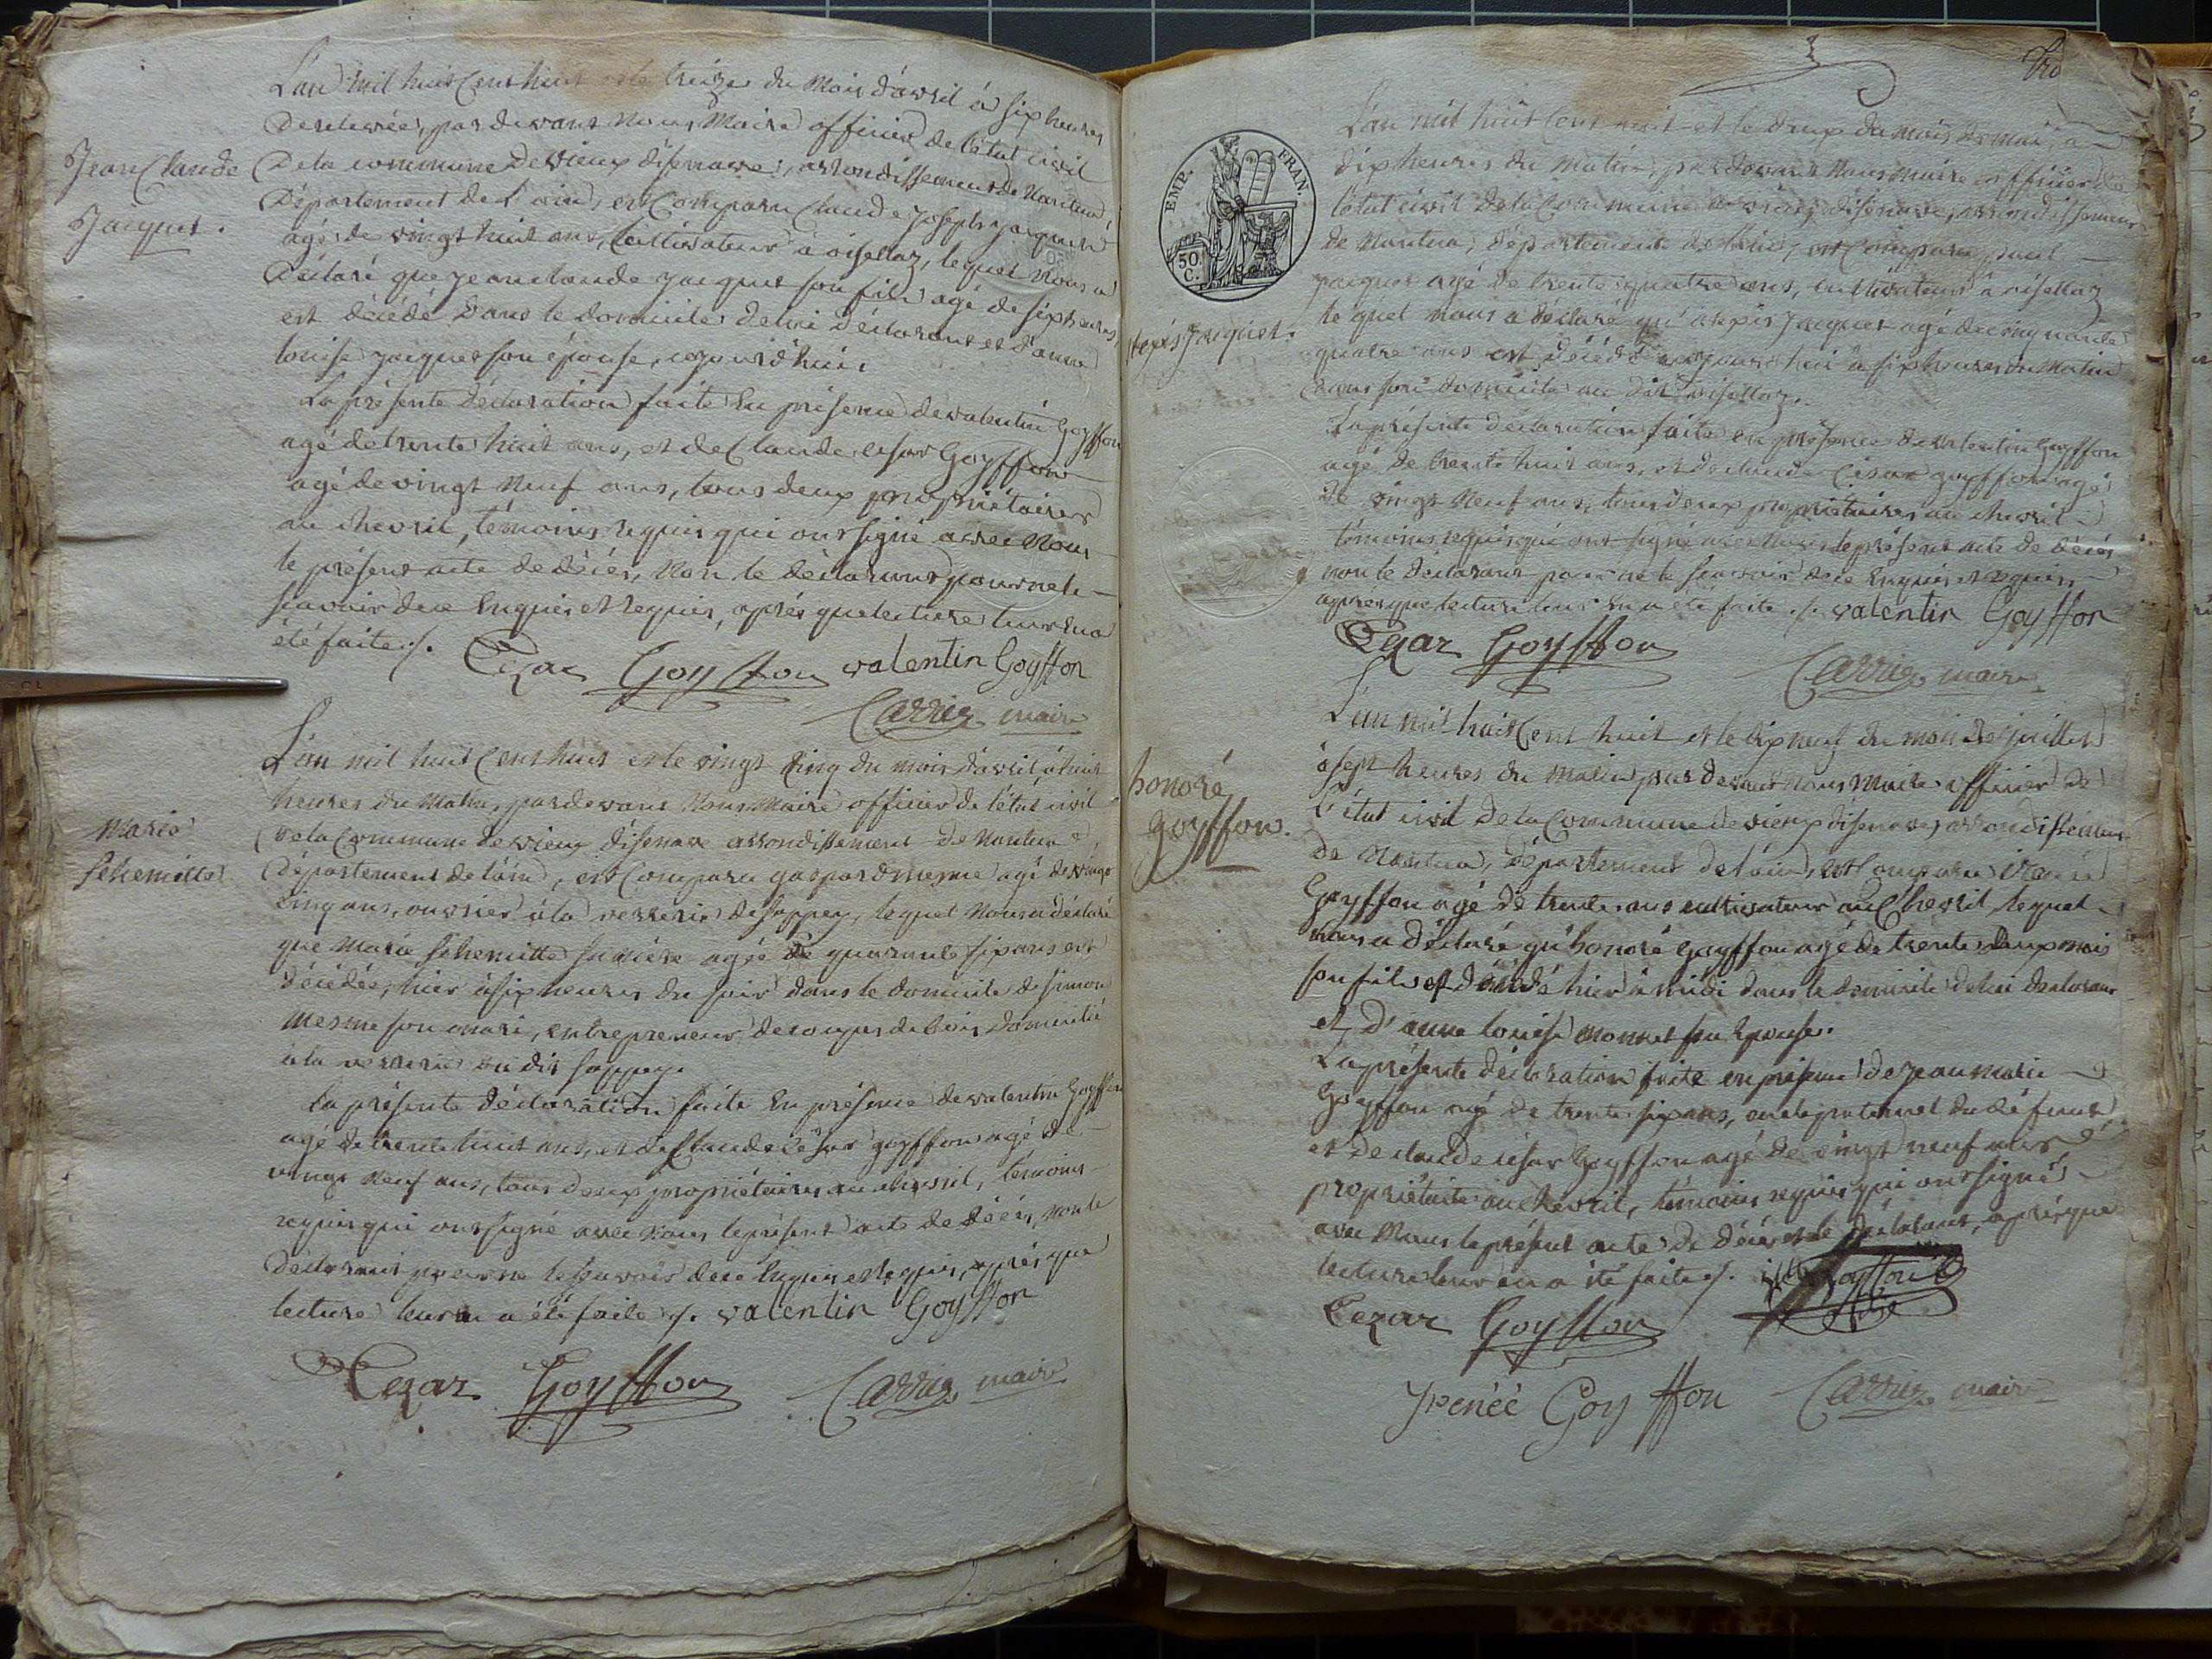 L'an mil huit cent huit et le treize du Mois d'avril à six heures
De relevée, par devant Nous Maire officier de l'état civil
Jean Claude
Jacquet.
De la commune de vieux d'isenave, arrondissement de Nantua,
Département de L'ain, est Comparu Claude Joseph Jacquet
agé de vingt huit ans, Cultivateur à oisellaz, lequel Nous a
Déclaré que jean claude jacquet son fils agé de six heures,
est décédé Dans le domicile de lui Déclarant et d'anne
louise jacquet son épouse, cejourd'hui.
La présente Déclaration faite En présence de valentin Goyffon
agé de trente huit ans, et de Claude cesar Goyffon
agé de vingt Neuf ans, tous deux propriétaires
au chevril, témoins requis qui ont signé avec Nous
le présent acte de Décès, Non le déclarant pour ne le
scavoir de ce Enquis et requis, après que lecture leur en a
été faite ./.
Cezar Goyffon valentin Goyffon
Carrier maire
L'an mil huit Cent huit et le vingt cinq du mois d'avril à huit
heures du Matin, par devant Nous Maire officier de l'état civil
Marie
Schemitte
De la Commune de vieux d'isenave arrondissement de Nantua
Département de l'ain, est Comparu gaspard mesme agé de vingt
cinq ans, ouvrier à la verrerie de sappey, lequel Nous a déclaré
que Marie Schemitte sa mère agée de quarante six ans est
Décédée, hier à six heures du soir dans le domicile de simon
mesme son mari, entrepreneur de coupes de bois Domicilié
à la verrerie au dit sappey.
La présente déclaration faite En présence de valentin Goyffon
agé de trente huit ans, et de Claude César goyffon agé de
vingt Neuf ans, tous Deux propriétaires au chevril, témoins
requis qui ont signé avec Nous le présent acte de Décès, Non le
Déclarant pour ne le scavoir de ce Enquis et requis, après que
lecture leur en a été faite ./. valentin Goyffon
Cezar Goyffon Carrier maire
EMP. FRAN.
50 C.
L'an mil huit Cent huit et le deux du mois de mai, à
dix heures du Matin, par devant Nous maire officier de
l'état civil de la Commune de vieux d'isenave, arrondissement
de Nantua, département de l'ain, est Comparu paul
jacquet agé de trente quatre ans, cultivateur à oisellaz
Jacquet.
lequel Nous a déclaré qu'alexis Jacquet agé de cinquante
quatre ans est décédé aujourd'hui à six heures du Matin
Dans son domicile au dit oisellaz.
La présente déclaration faite en présence de valentin Goyffon
agé de trente huit ans, et de claude César goyffon agé
de vingt Neuf ans, tous deux propriétaires au chevril
témoins requis qui ont signé avec Nous le présent acte de Décès
non le déclarant pour ne le scavoir de ce Enquis et requis
après que lecture leur En a été faite ./. valentin Goyffon
Cezar Goyffon
Carrier maire
L'an mil huit Cent huit et le dix neuf du mois de juillet
honoré
goyffon.
à sept heures du Matin par devant nous Maire officier de
l'état civil de la Commune de vieux d'isenave, arrondissement
de Nantua, Département de l'ain, est Comparu irénée
Goyffon agé de trente ans cultivateur au Chevril, lequel
nous a déclaré qu'honoré goyffon agé de trente deux mois
son fils est décédé hier à midi dans le domicile de lui Déclarant
et d'anne louise monnet son Epouse.
La présente déclaration faite en présence de jean marie
Goyffon agé de trente six ans, oncle paternel du défunt
et de claude césar Goyffon agé de vingt neuf ans
propriétaire au chevril, témoins requis qui ont signé
avec Nous le présent acte de Décès et le Déclarant, après que
lecture leur en a été faite ./. Goyffon
Cezar Goyffon
Irenéé Goyffon Carrier maire